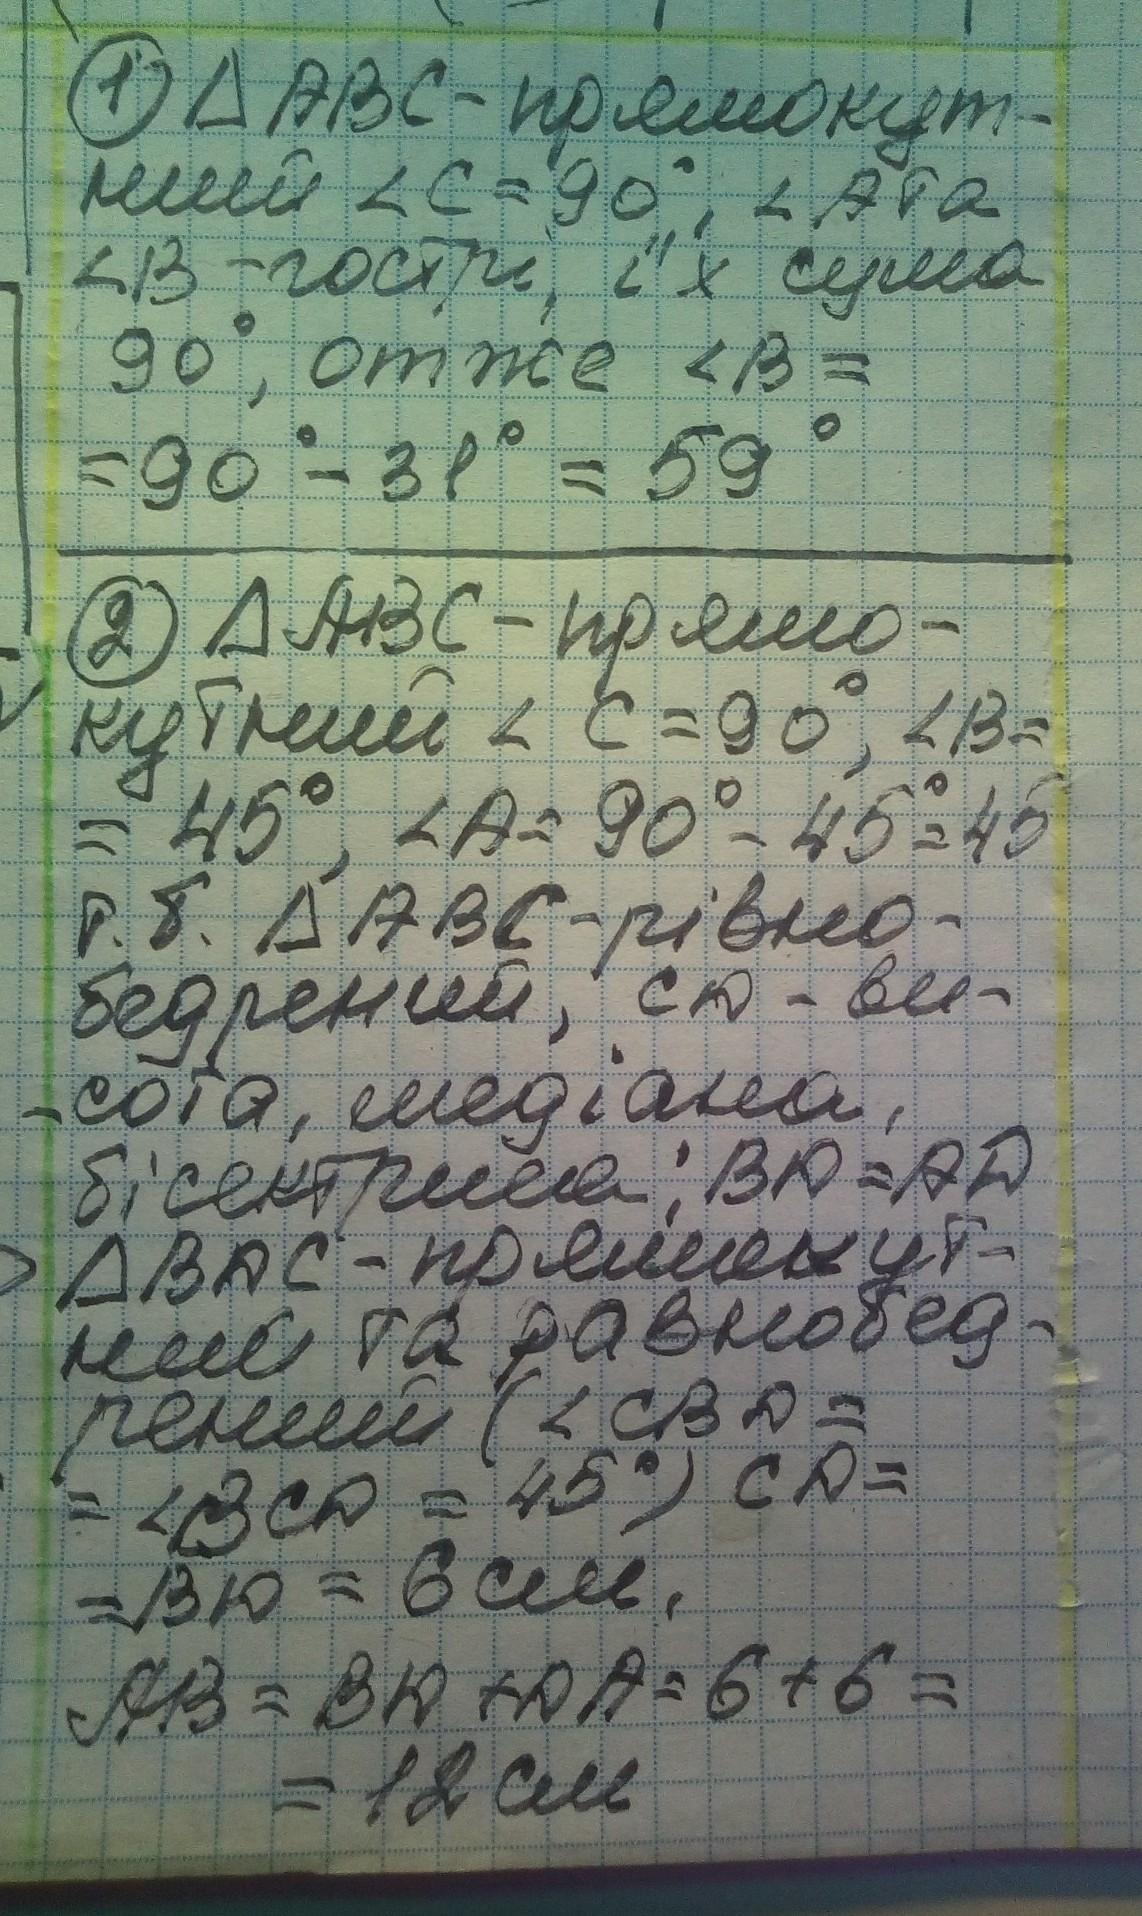 ① Δ ABC - прямокут-
ний ∠C = 90°, ∠A та
∠B - гострі, їх сума
90°, отже ∠B =
= 90° - 31° = 59°
② Δ ABC - прямо-
кутний ∠ C = 90°, ∠B =
= 45°, ∠A = 90° - 45° = 45
т.б. Δ ABC - рівно-
бедрений, CD - ви-
-сота, медіана,
бісектриса; BD = AD
Δ BDC - прямокут-
ний та равнобед-
рений (∠ CBD =
= ∠BCD = 45°) CD =
= BD = 6 см.
AB = BD + DA = 6 + 6 =
= 12 см